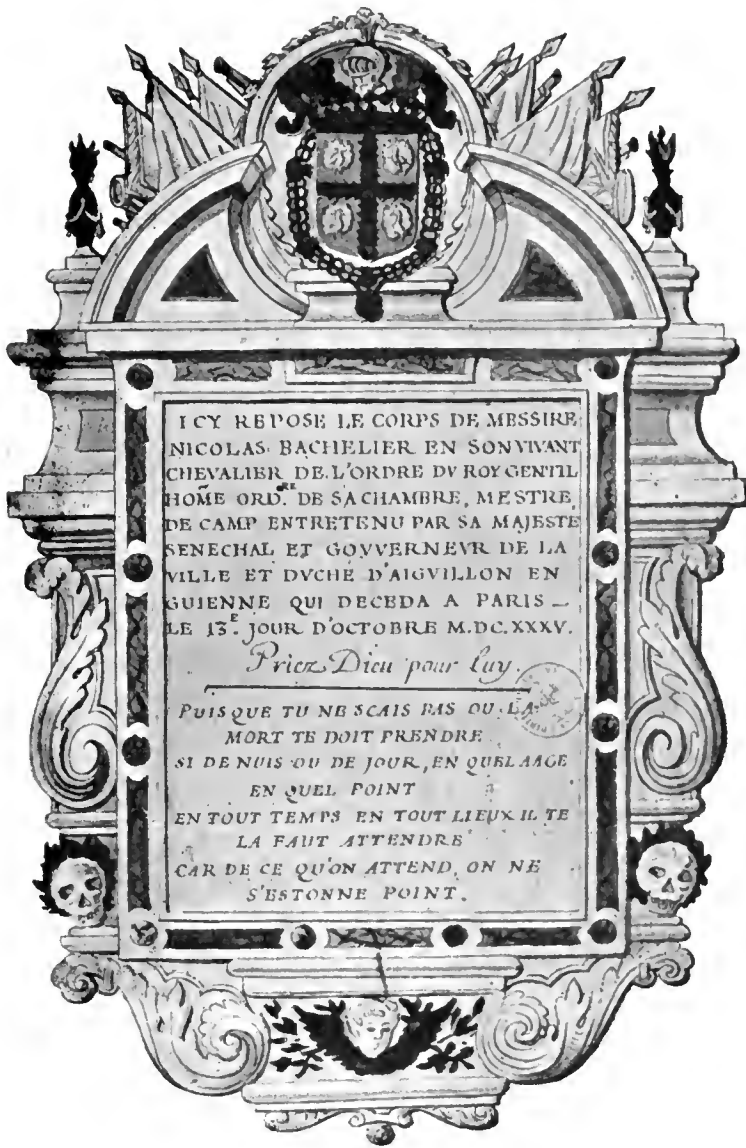 ICY REPOSE LE CORPS DE MESSIRE
NICOLAS BACHELIER EN SON VIVANT
CHEVALIER DE L'ORDRE DV ROY GENTIL
HOM̃E ORD.RE DE SA CHAMBRE, MESTRE
DE CAMP ENTRETENU PAR SA MAJESTE
SENECHAL ET GOVVERNEVR DE LA
VILLE ET DVCHÉ D'AIGVILLON EN
GUIENNE QUI DECEDA A PARIS –
LE 13.E JOUR D'OCTOBRE M.DC.XXXV.
Priez Dieu pour luy.
PUISQUE TU NE SCAIS PAS OU LA
MORT TE DOIT PRENDRE
SI DE NUIS OU DE JOUR, EN QUEL AAGE
EN QUEL POINT
EN TOUT TEMPS EN TOUT LIEUX IL TE
LA FAUT ATTENDRE
CAR DE CE QU'ON ATTEND, ON NE
S'ESTONNE POINT.